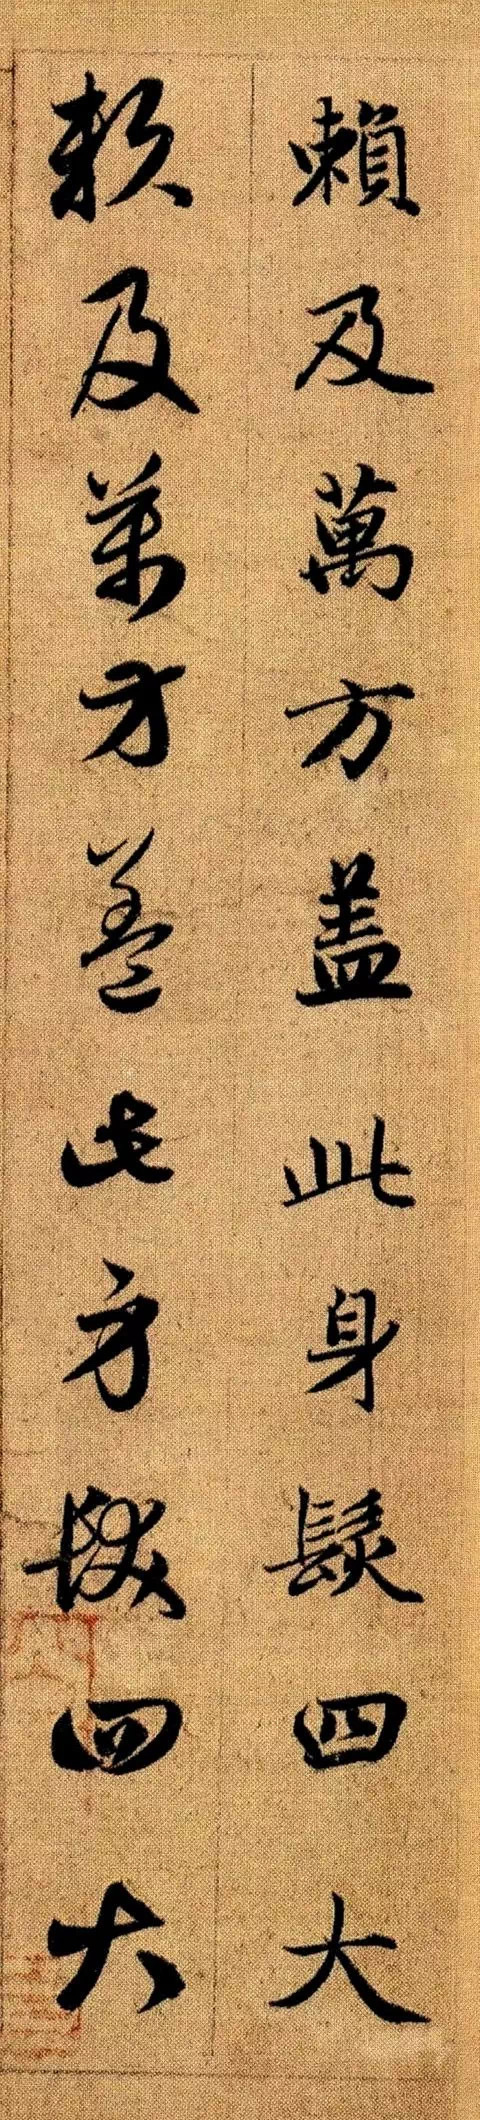 賴及萬方盖此身髮四大
賴及萬方盖此身髮四大